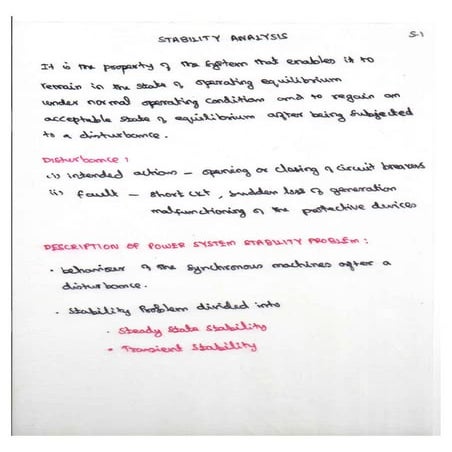 STABILITY ANALYSIS
S-1
It is the property of the system that enables it to
remain in the state of operating equilibrium
under normal operating condition and to regain an
acceptable state of equilibrium after being subjected
to a disturbance.
Disturbance :
i) Intended action - opening or closing of circuit breakers
ii) fault - short ckt, sudden loss of generation
malfunctioning of the protective devices
DESCRIPTION OF POWER SYSTEM STABILITY PROBLEM :
• behaviour of the synchronous machines after a
disturbance.
• Stability Problem divided into
• Steady State Stability
• Transient Stability